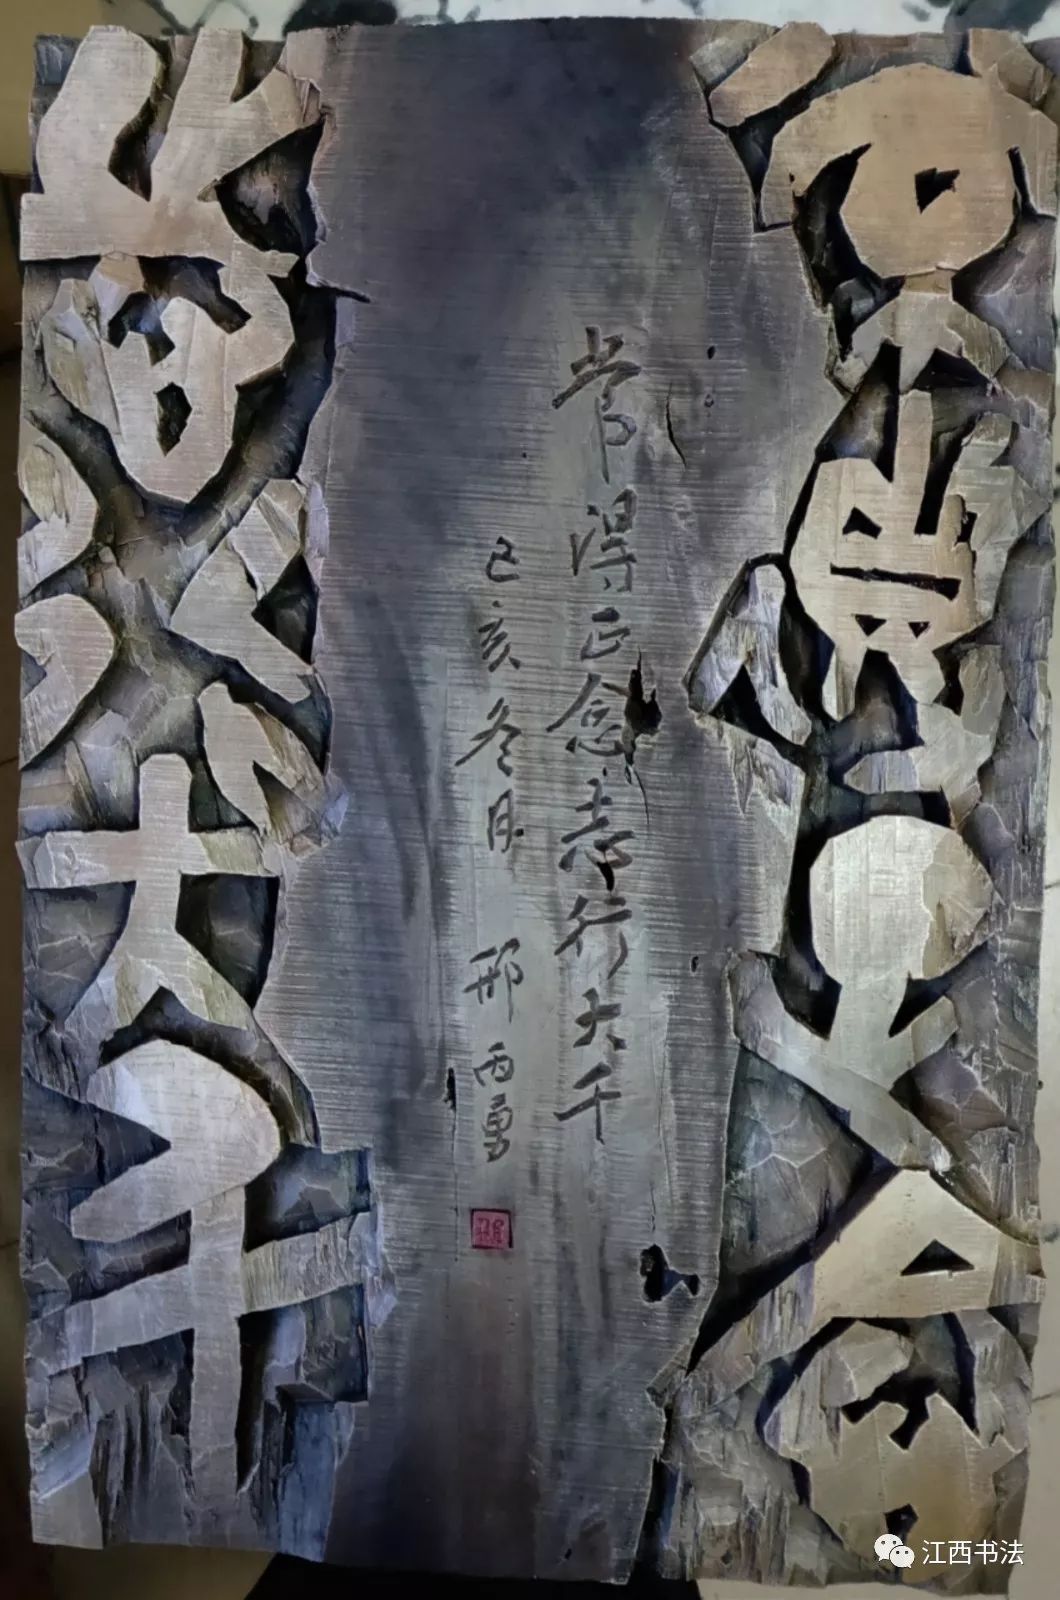 常得正念
志行大千
常得正念志行大千
己亥冬月 邢 勇
江西书法